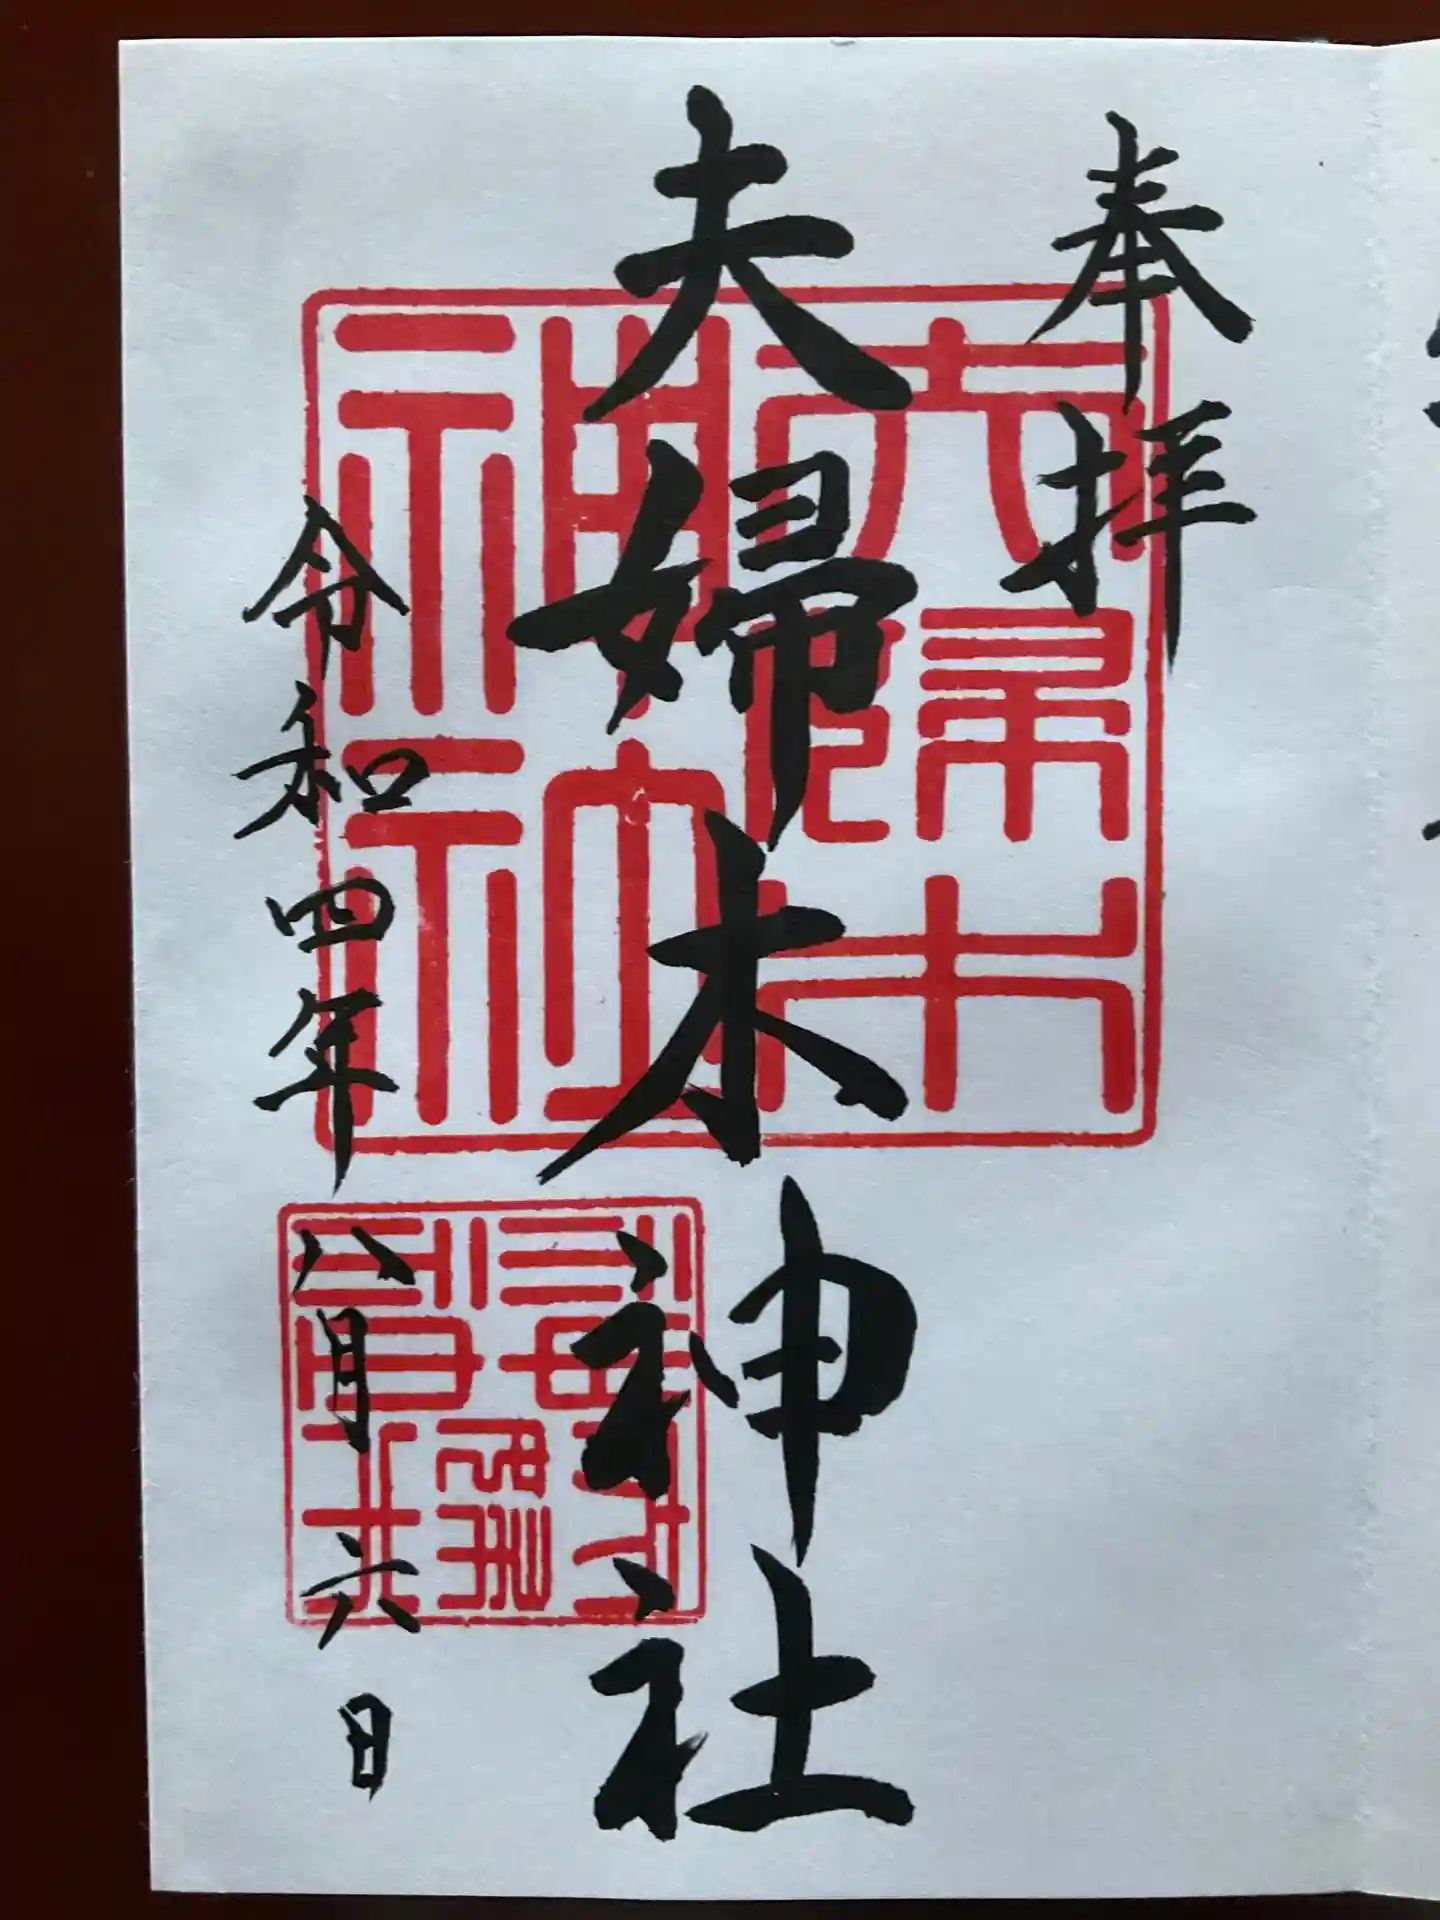 奉拝
夫婦木神社
令和四年八月六日
夫婦木
神社